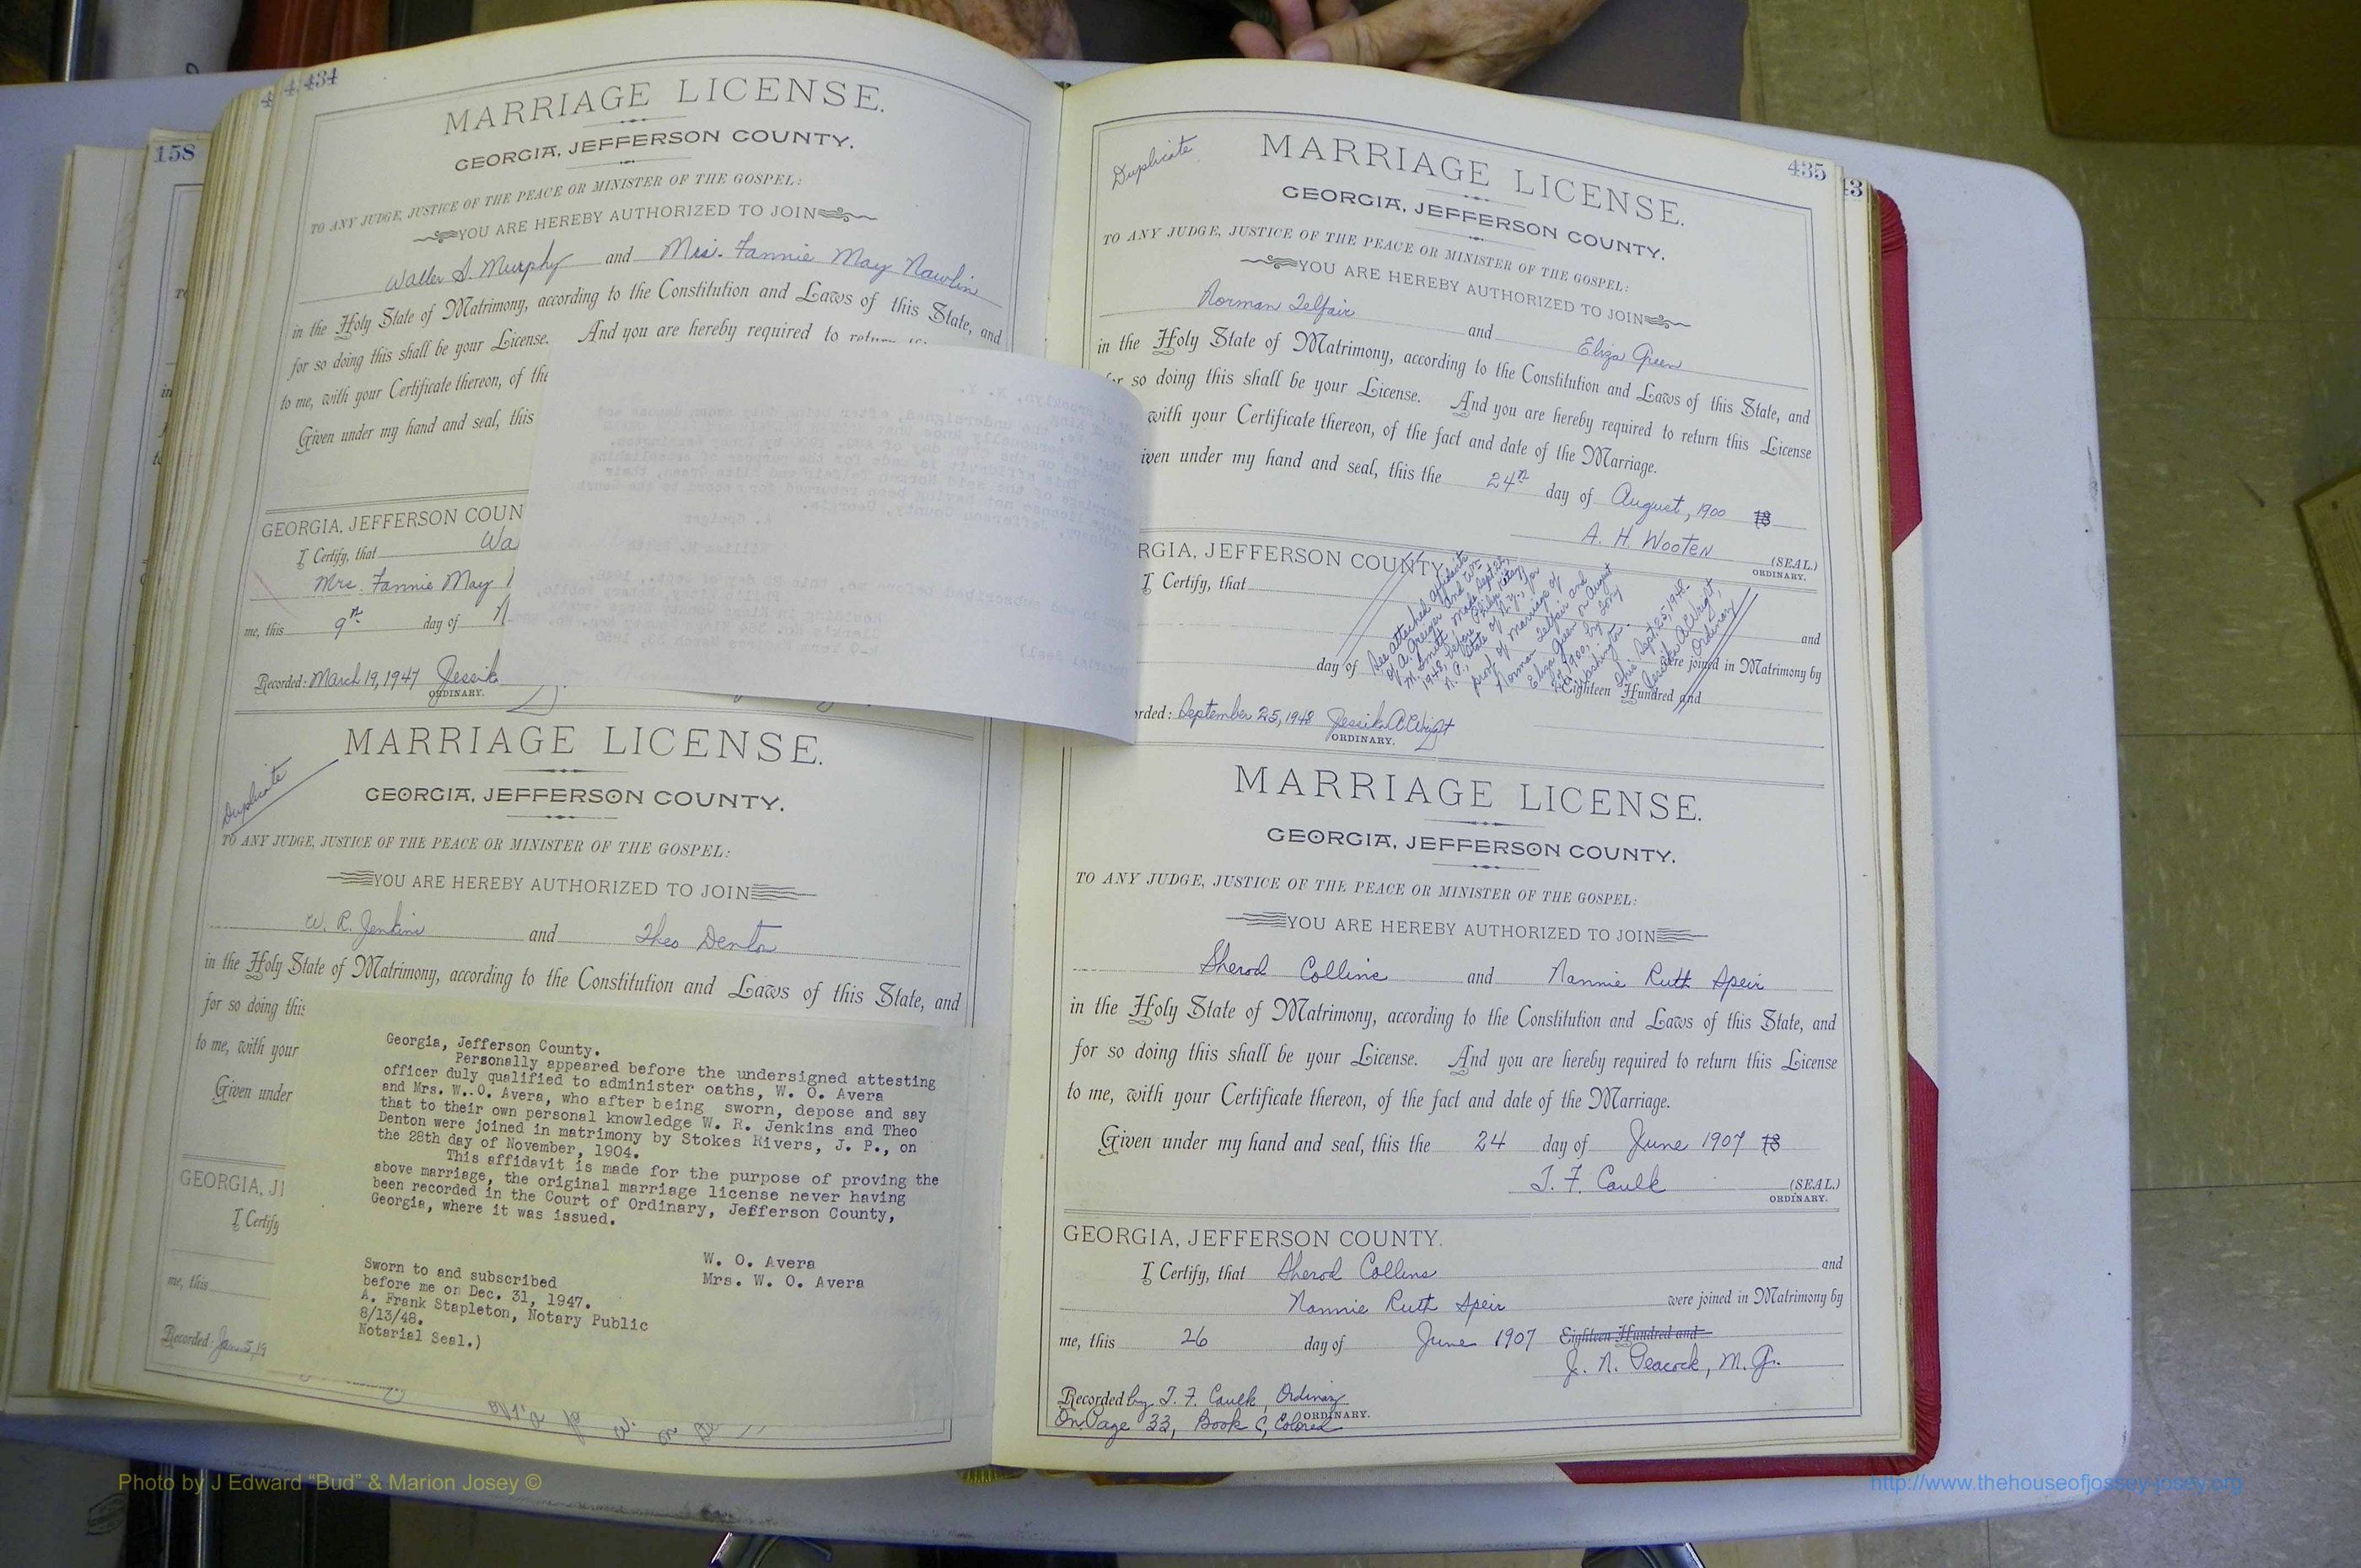 434
MARRIAGE LICENSE.
GEORGIA, JEFFERSON COUNTY.
TO ANY JUDGE, JUSTICE OF THE PEACE OR MINISTER OF THE GOSPEL:
YOU ARE HEREBY AUTHORIZED TO JOIN
Walter S. Murphy and Mrs. Fannie May Nawlin
in the Holy State of Matrimony, according to the Constitution and Laws of this State, and
for so doing this shall be your License. And you are hereby required to return
to me, with your Certificate thereon, of the
Given under my hand and seal, this
GEORGIA, JEFFERSON COUN
I Certify, that Wa
Mrs. Fannie May
me, this 9th day of
Recorded: March 19, 1947 Jessik
ORDINARY.
158
MARRIAGE LICENSE.
Duplicate
GEORGIA, JEFFERSON COUNTY.
TO ANY JUDGE, JUSTICE OF THE PEACE OR MINISTER OF THE GOSPEL:
YOU ARE HEREBY AUTHORIZED TO JOIN
W. R. Jenkins and Theo Denton
in the Holy State of Matrimony, according to the Constitution and Laws of this State, and
for so doing this
to me, with your
Given under
Georgia, Jefferson County.
Personally appeared before the undersigned attesting
officer duly qualified to administer oaths, W. O. Avera
and Mrs. W..O. Avera, who after being sworn, depose and say
that to their own personal knowledge W. R. Jenkins and Theo
Denton were joined in matrimony by Stokes Rivers, J. P., on
the 28th day of November, 1904.
This affidavit is made for the purpose of proving the
above marriage, the original marriage license never having
been recorded in the Court of Ordinary, Jefferson County,
Georgia, where it was issued.
W. O. Avera
Mrs. W. O. Avera
Sworn to and subscribed
before me on Dec. 31, 1947.
A. Frank Stapleton, Notary Public
8/13/48.
Notarial Seal.)
GEORGIA, J
I Certify
me, this
Recorded: Jan. 5, 19
435
Duplicate
MARRIAGE LICENSE.
GEORGIA, JEFFERSON COUNTY.
TO ANY JUDGE, JUSTICE OF THE PEACE OR MINISTER OF THE GOSPEL:
YOU ARE HEREBY AUTHORIZED TO JOIN
Norman Telfair and Eliza Green
in the Holy State of Matrimony, according to the Constitution and Laws of this State, and
so doing this shall be your License. And you are hereby required to return this License
with your Certificate thereon, of the fact and date of the Marriage.
iven under my hand and seal, this the 24th day of August, 1900 18
A. H. Wooten (SEAL.)
ORDINARY.
RGIA, JEFFERSON COUNTY.
I Certify, that
See attached affidavits
of A. Greiger and Wm
M. Smith made Sept 22,
1948, before Philip
N. C., State of N. Y., for
proof of marriage of
Norman Telfair and
Eliza Green on August
1900, by
Washington.
This Sept. 25, 1948.
Jessik A. Wright,
Ordinary
and
day of were joined in Matrimony by
Eighteen Hundred and
rded: September 25, 1948 Jessik A. Wright
ORDINARY.
MARRIAGE LICENSE.
GEORGIA, JEFFERSON COUNTY.
TO ANY JUDGE, JUSTICE OF THE PEACE OR MINISTER OF THE GOSPEL:
YOU ARE HEREBY AUTHORIZED TO JOIN
Sherod Collins and Nannie Ruth Speir
in the Holy State of Matrimony, according to the Constitution and Laws of this State, and
for so doing this shall be your License. And you are hereby required to return this License
to me, with your Certificate thereon, of the fact and date of the Marriage.
Given under my hand and seal, this the 24 day of June 1907 18
J. F. Caulk (SEAL.)
ORDINARY.
GEORGIA, JEFFERSON COUNTY.
I Certify, that Sherod Collins and
Nannie Ruth Speir were joined in Matrimony by
me, this 26 day of June 1907 Eighteen Hundred and
J. N. Peacock, M. G.
Recorded by J. F. Caulk, Ordinary
ORDINARY.
On Page 33, Book C, Colored
Photo by J Edward “Bud” & Marion Josey ©
http://www.thehouseofjossey-josey.org